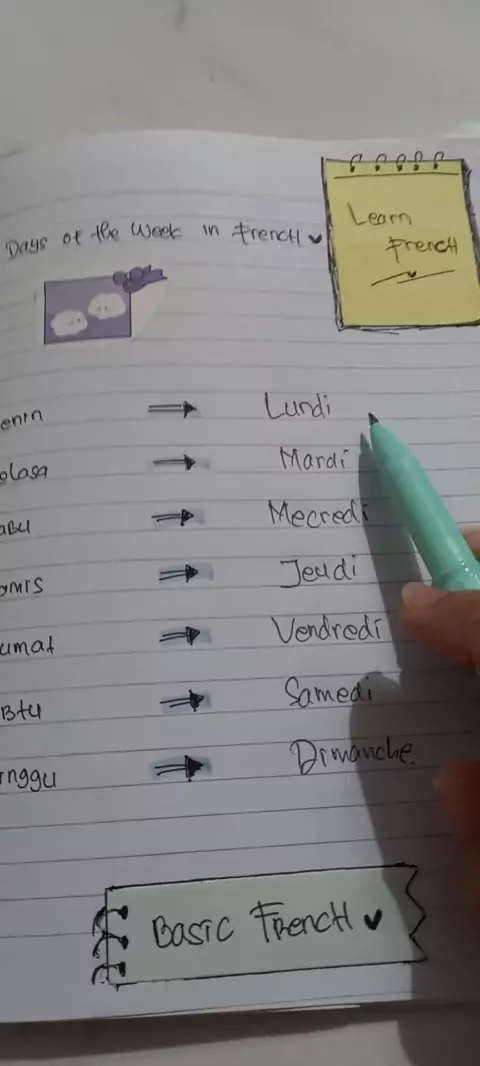 Learn
French
Days of the Week in French
enin Lundi
olasa Mardi
abu Mecredi
amis Jeudi
umat Vendredi
Btu Samedi
inggu Dimanche.
Basic French